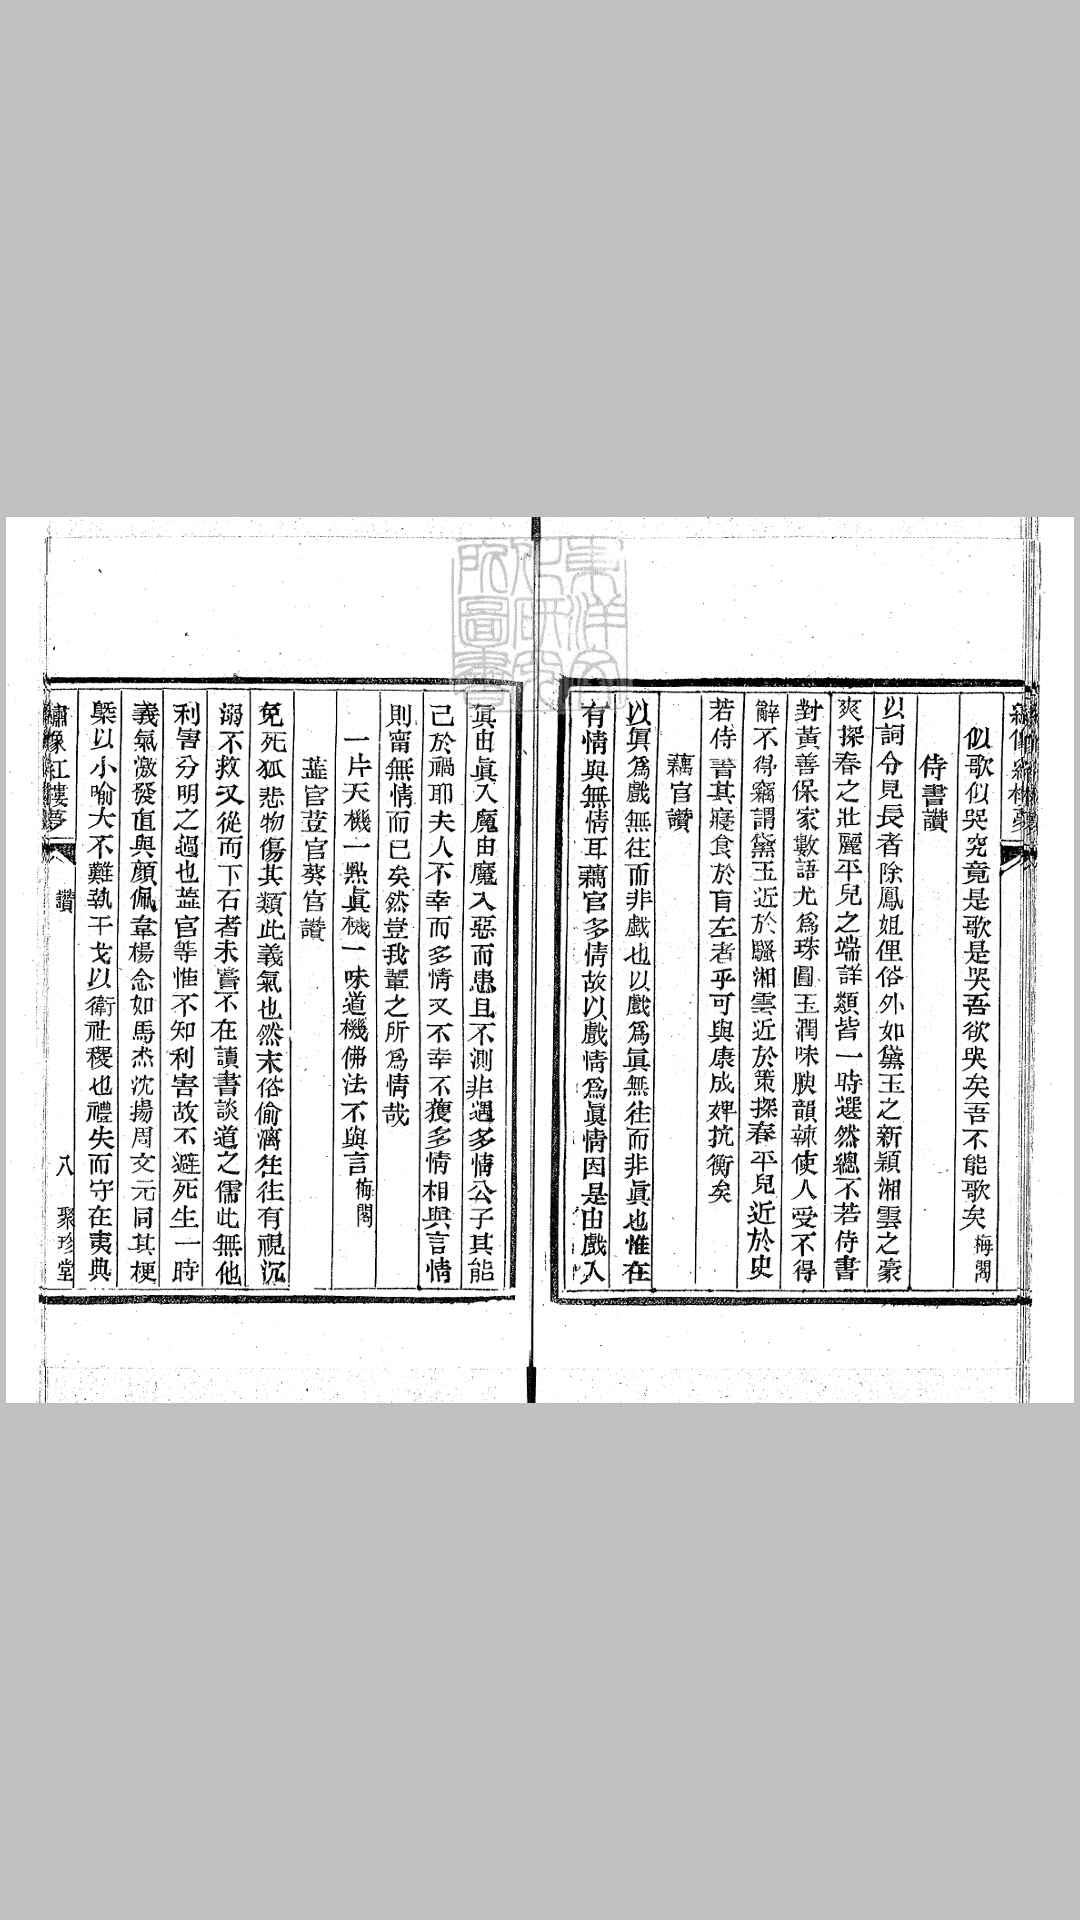 繡像紅樓夢
似歌似哭究竟是歌是哭吾欲哭矣吾不能歌矣梅閣
侍書讚
以詞令見長者除鳳姐俚俗外如黛玉之新穎湘雲之豪
爽探春之壯麗平兒之端詳類皆一時選然總不若侍書
對黃善保家數語尤爲珠圓玉潤味腴韻辣使人受不得
辭不得竊謂黛玉近於騷湘雲近於策探春平兒近於史
若侍書其寢食於盲左者乎可與康成婢抗衡矣
藕官讚
以眞爲戲無往而非戲也以戲爲眞無往而非眞也惟在
有情與無情耳藕官多情故以戲情爲眞情因是由戲入
眞由眞入魔由魔入惡而患且不測非遇多情公子其能
己於禍耶夫人不幸而多情又不幸不獲多情相與言情
則甯無情而已矣然豈我輩之所爲情哉
一片天機一點眞機一味道機佛法不與言梅閣
蕋官荳官葵官讚
兔死狐悲物傷其類此義氣也然末俗偷漓往往有視沉
溺不救又從而下石者未嘗不在讀書談道之儒此無他
利害分明之過也蕋官等惟不知利害故不避死生一時
義氣激發直與顔佩韋楊念如馬杰沈揚周文元同其梗
槩以小喻大不難執干戈以衛社稷也禮失而守在夷典
繡像紅樓夢
讚
八
聚珍堂